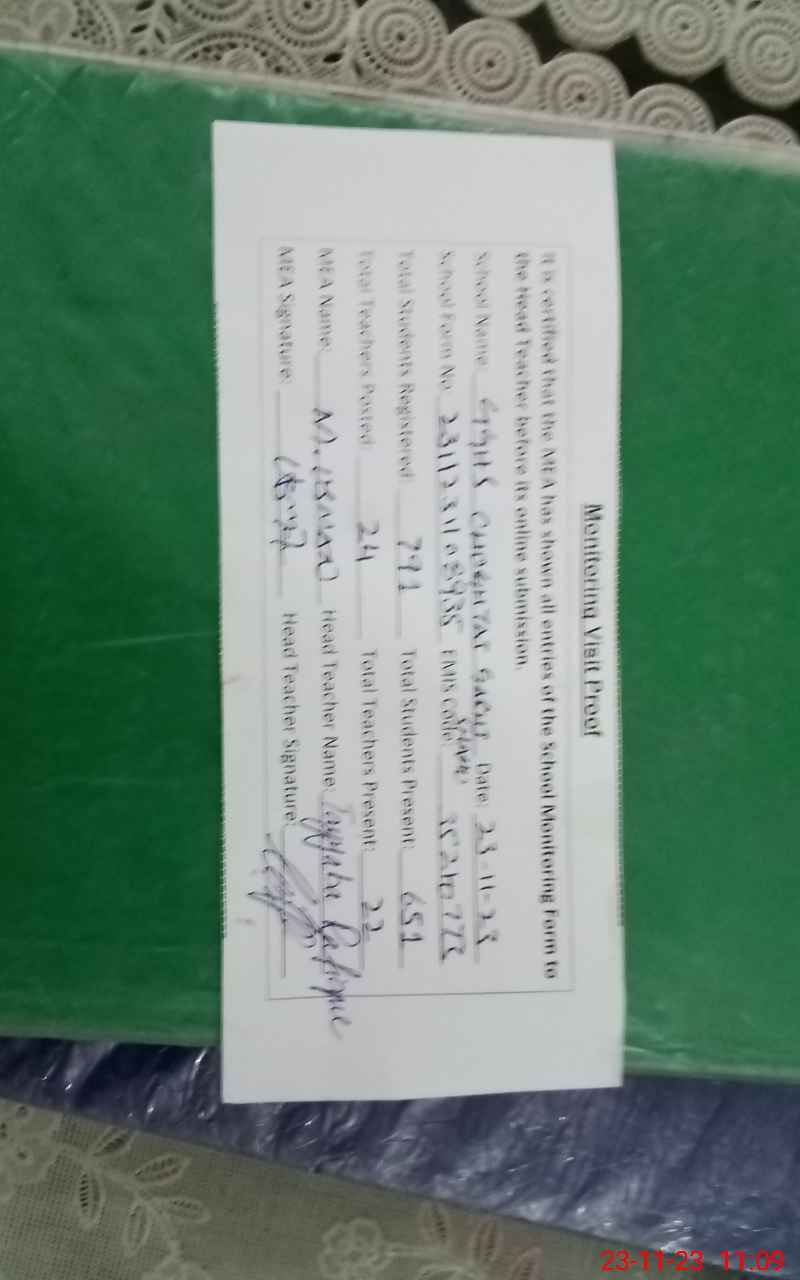 Monitoring Visit Proof
It is certified that the MEA has shown all entries of the School Monitoring Form to
the Head Teacher before its online submission.
School Name: GGHS Date: 23-11-23
School Form No. EMIS Code:
Total Students Registered: 791 Total Students Present: 651
Total Teachers Posted: 24 Total Teachers Present: 22
MEA Name: M. USMAN Head Teacher Name: Rafique
MEA Signature: Head Teacher Signature:
23-11-23 11:09